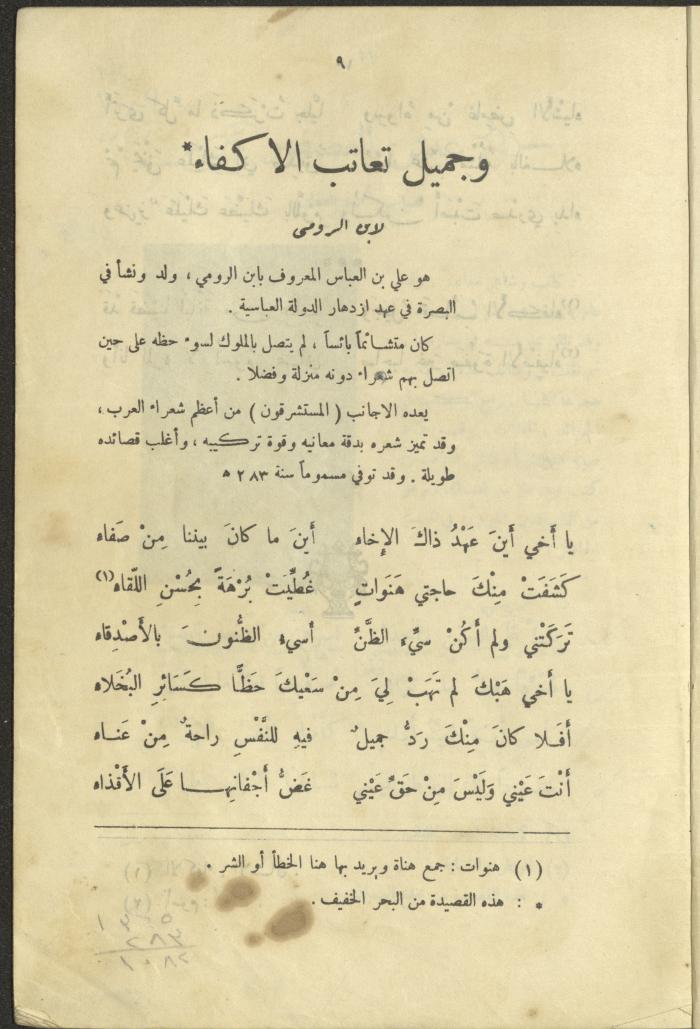 ٩
وجميل تعاتب الاكفاء*
لابن الرومى
هو علي بن العباس المعروف بابن الرومي ، ولد ونشأ في
البصرة في عهد ازدهار الدولة العباسية .
كان متشائماً بائساً ، لم يتصل بالملوك لسوء حظه على حين
اتصل بهم شعراء دونه منزلة وفضلا .
يعده الاجانب ( المستشرقون ) من أعظم شعراء العرب ،
وقد تميز شعره بدقة معانيه وقوة تركيبه ، وأغلب قصائده
طويلة . وقد توفي مسموماً سنة ٢٨٣ ه
يا أَخي أَينَ عَهْدُ ذاكَ الإخاء أَينَ ما كانَ بيننا مِنْ صَفاء
كَشَفَتْ مِنْكَ حاجتي هَنَواتٍ غُطِّيَتْ بُرْهَةً بِحُسْنِ اللّقاء(١)
تَرَكَتْني ولم أَكُنْ سَيِّءَ الظَّنِّ أسيءُ الظُّنونَ بالأَصْدِقاء
يا أَخي هَبْكَ لم تَهَبْ لِيَ مِنْ سَعْيكَ حَظًّا كَسَائِرِ البُخَلاء
أَفَلا كانَ مِنْكَ رَدُّ جميلٌ فيهِ للنَّفْسِ راحةٌ مِنْ عَناء
أَنْتَ عَيْني وَلَيْسَ مِنْ حَقِّ عَيْني غَضُّ أَجْفانِها عَلَى الأَقْذاء
(١) هنوات : جمع هناة ويريد بها هنا الخطأ أو الشر .
* : هذه القصيدة من البحر الخفيف .
٢٨٣
١٠٨٢